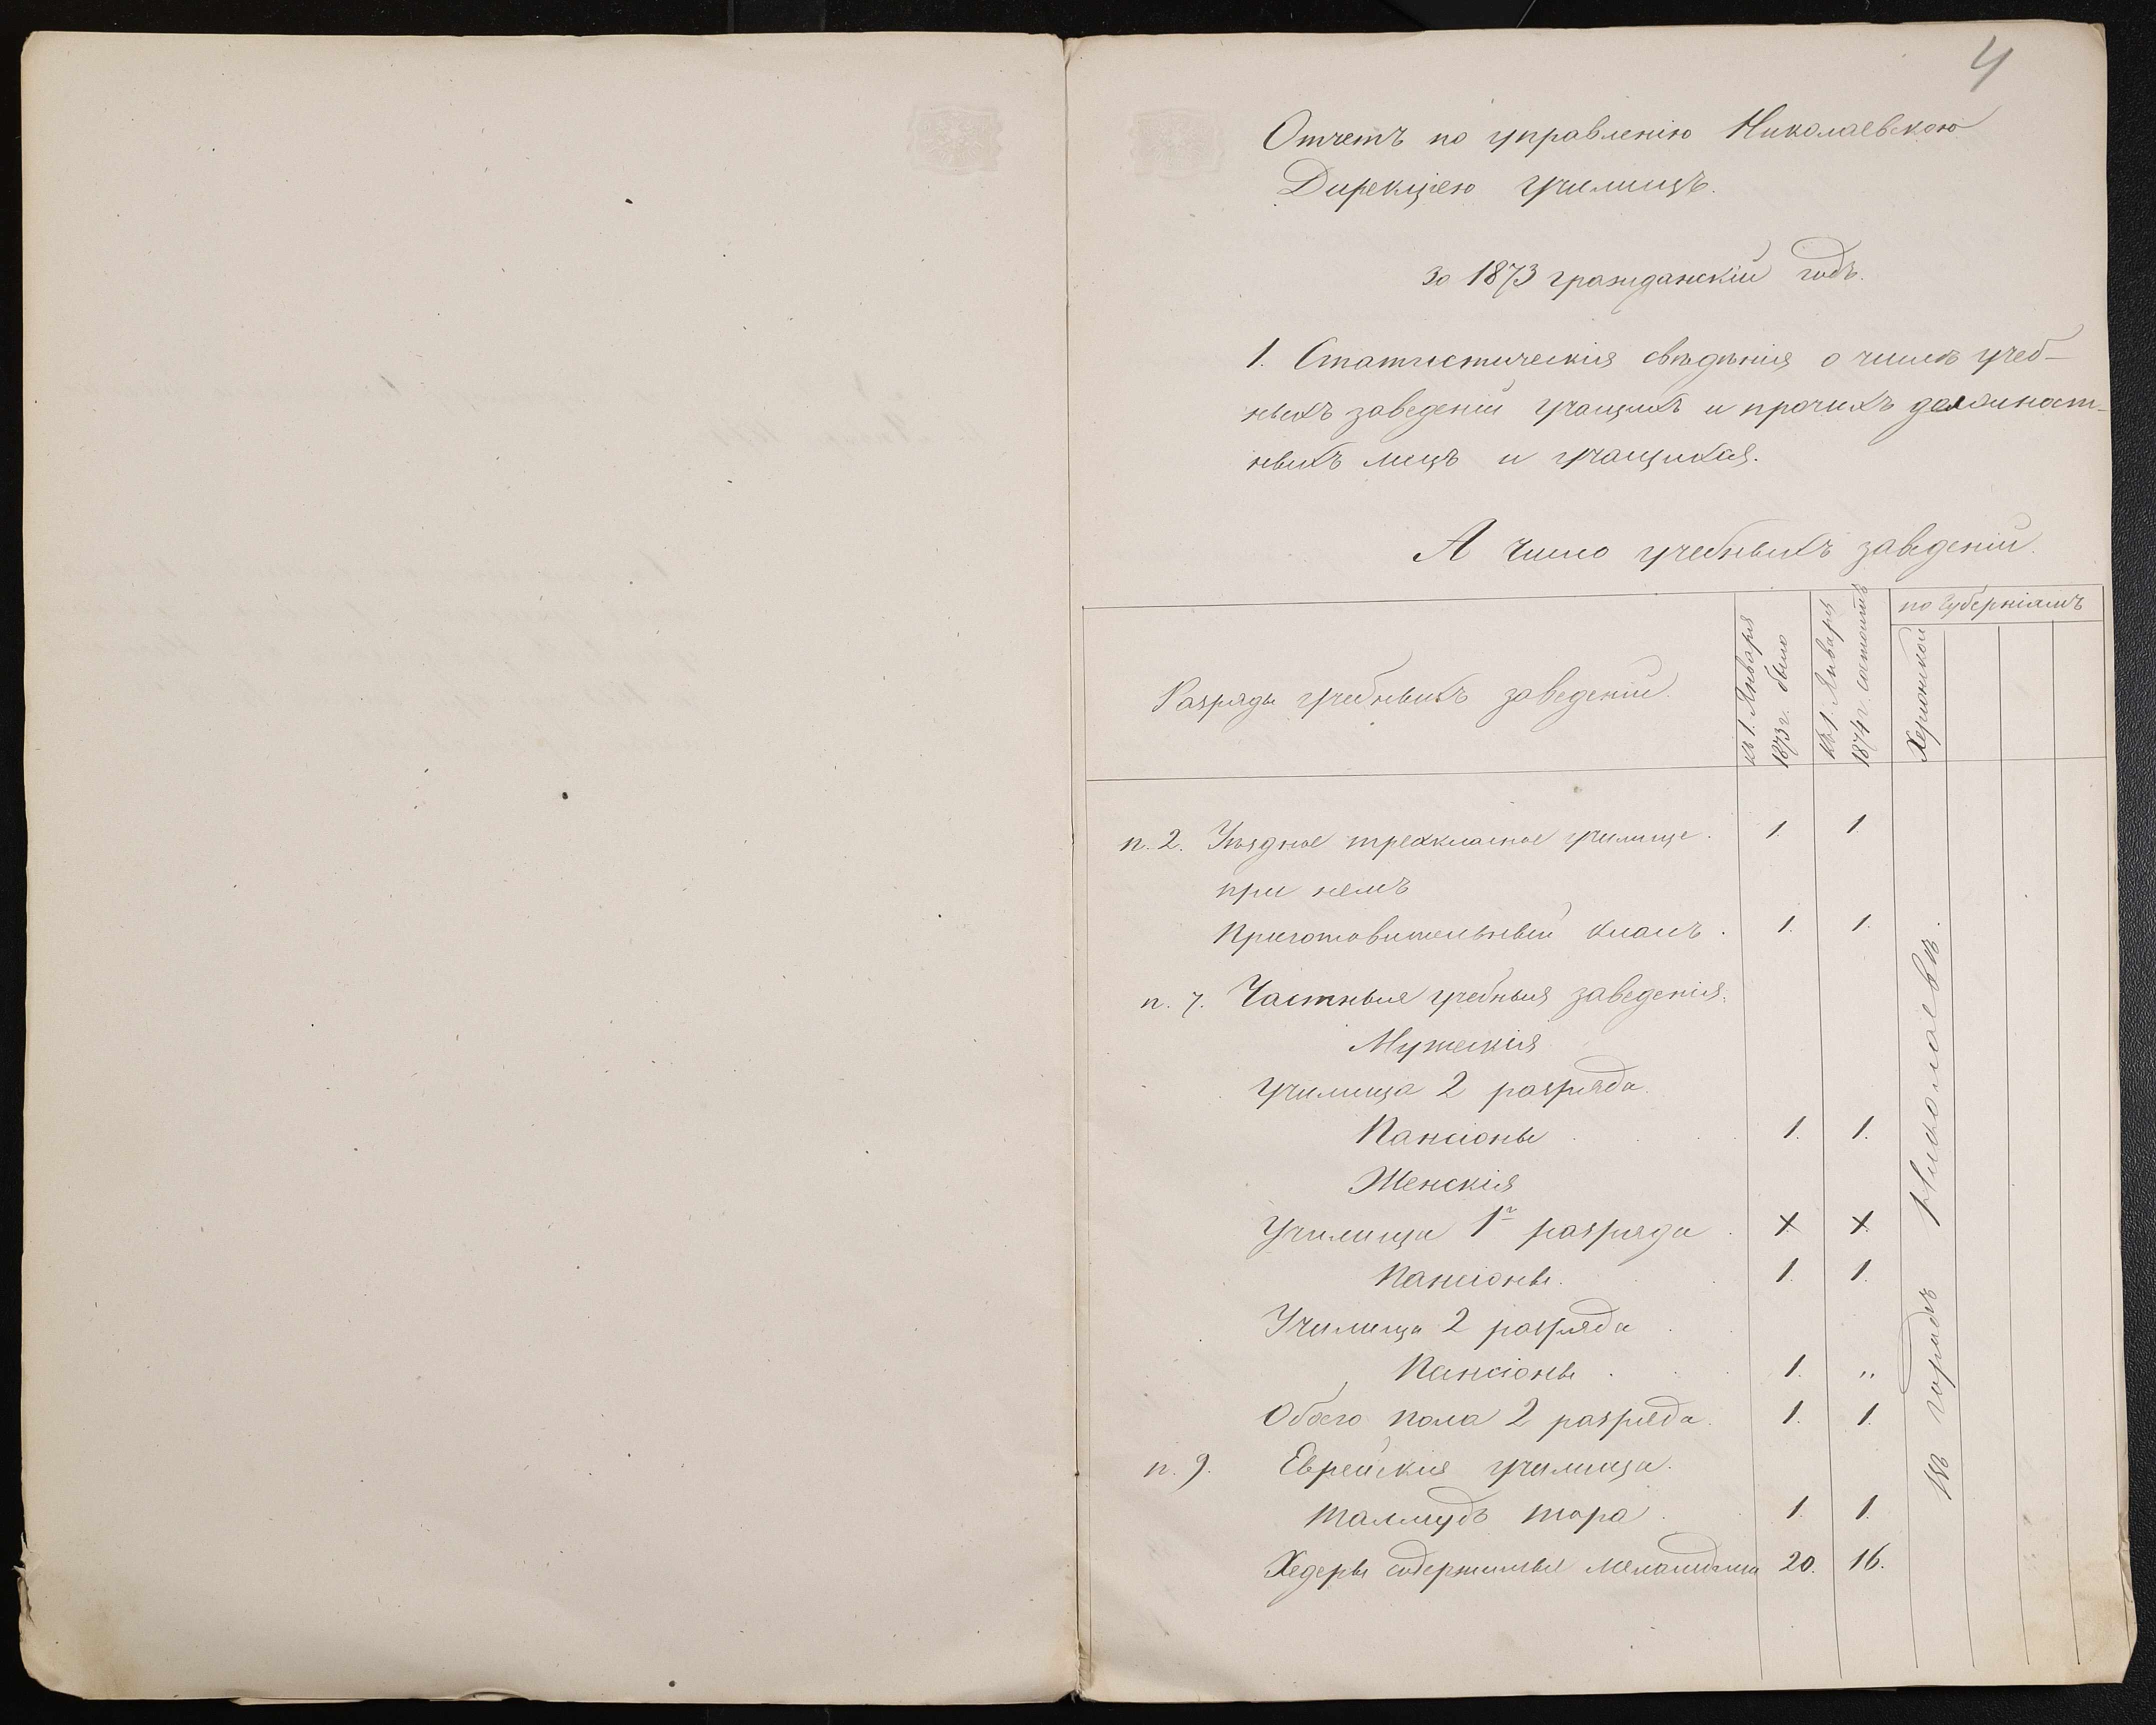 4
Отчетъ по управленію Николаевскою
Дирекціею училищъ.
за 1873 гражданскій годъ.
1. Статистическія свѣдѣнія о числѣ учеб-
ныхъ заведеній учащихъ и прочихъ должност-
ныхъ лицъ и учащихся.
А Число учебныхъ заведеній.
Разряды учебныхъ заведеній.
къ 1. Января
1873 г. было
къ 1. Января
1874 г. состоитъ
по Губерніямъ
Херсонской
п. 2. Уѣздное трехкласное училище. 1. 1.
при немъ
Приготовительный класъ. 1. 1.
п. 7. Частныя учебныя заведенія.
Мужскія
Училища 2 разряда.
Пансіоны 1. 1.
Женскія
Училища 1го разряда. x x
Пансіоны. 1. 1.
Училища 2 разряда
Пансіоны. 1. "
Обоего пола 2 разряда. 1. 1.
п. 9. Еврейскія училища.
Талмудъ тора 1. 1.
Хедеры содержимые меламдами 20. 16.
Въ городѣ Николаевѣ.